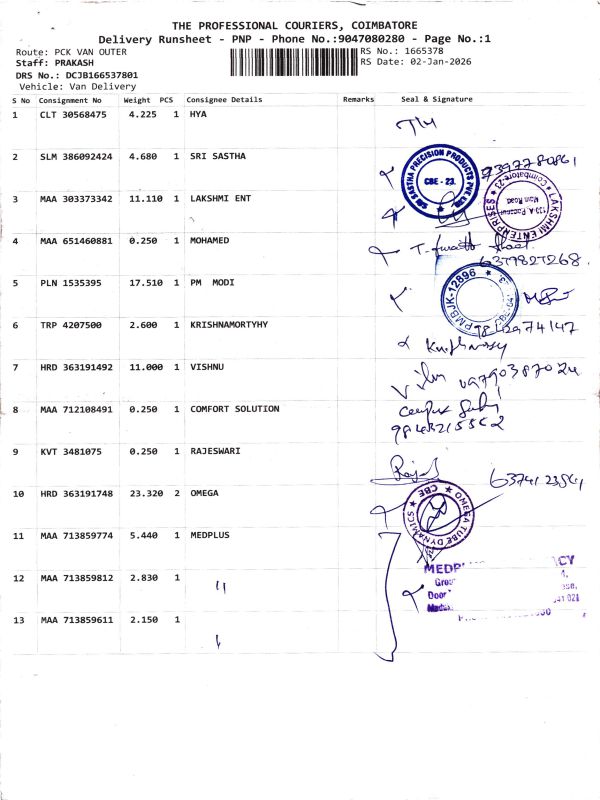 THE PROFESSIONAL COURIERS, COIMBATORE
Delivery Runsheet - PNP - Phone No.:9047080280 - Page No.:1
Route: PCK VAN OUTER RS No.: 1665378
Staff: PRAKASH RS Date: 02-Jan-2026
DRS No.: DCJB166537801
Vehicle: Van Delivery
S No Consignment No Weight PCS Consignee Details Remarks Seal & Signature
1 CLT 30568475 4.225 1 HYA
2 SLM 386092424 4.680 1 SRI SASTHA
SRI SASTHA PRECISION PRODUCTS PVT LTD
CBE - 23.
3 MAA 303373342 11.110 1 LAKSHMI ENT
LAKSHMI ENTERPRISES
Main Road
Coimbatore-23
4 MAA 651460881 0.250 1 MOHAMED
6379827268.
5 PLN 1535395 17.510 1 PM MODI
PMBJK-12896
6 TRP 4207500 2.600 1 KRISHNAMORTYHY
7 HRD 363191492 11.000 1 VISHNU
8 MAA 712108491 0.250 1 COMFORT SOLUTION
9 KVT 3481075 0.250 1 RAJESWARI
10 HRD 363191748 23.320 2 OMEGA
OMEGA TUBE DYNAMICS
CBE
11 MAA 713859774 5.440 1 MEDPLUS
12 MAA 713859812 2.830 1 "
13 MAA 713859611 2.150 1